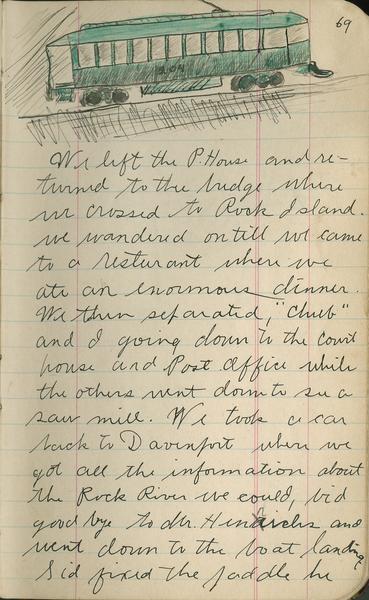 69
We left the P. House and re-
turned to the bridge where
we crossed to Rock Island.
we wandered on till we came
to a resturant where we
ate an enormous dinner.
We then separated, "Chub"
and I going down to the Court
house and Post Office while
the others went down to see a
saw mill. We took a car
back to Davenport where we
got all the information about
the Rock River we could, bid
good bye to Mr. Hinrichs and
went down to the boat landing
Sid fixed the paddle he